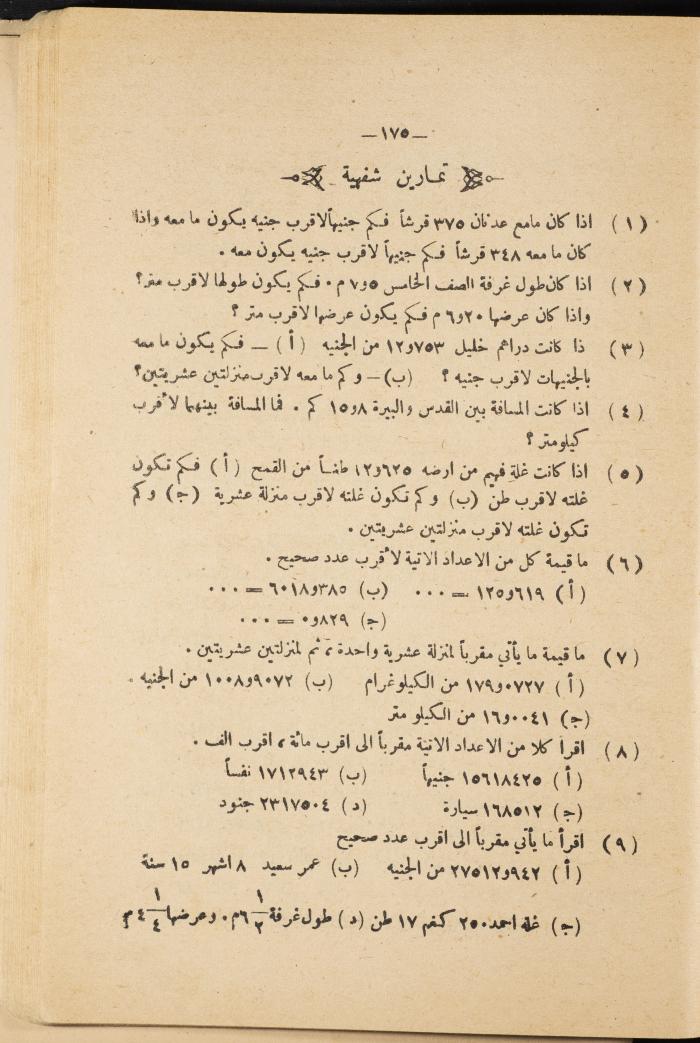 —١٧٥—
تمارين شفهية
(١) اذا كان مامع عدنان ٣٧٥ قرشاً فكم جنيهاً لاقرب جنيه يكون ما معه واذا
كان ما معه ٣٤٨ قرشاً فكم جنيهاً لاقرب جنيه يكون معه .
(٢) اذا كان طول غرفة الصف الخامس ٥و٧ م . فكم يكون طولها لاقرب متر ؟
واذا كان عرضها ٢٠و٦ م فكم يكون عرضها لاقرب متر ؟
(٣) ذا كانت دراهم خليل ٧٥٣و١٢ من الجنيه (أ) — فكم يكون ما معه
بالجنيهات لاقرب جنيه ؟ (ب) — وكم ما معه لاقرب منزلتين عشريتين؟
(٤) اذا كانت المسافة بين القدس والبيرة ٨و١٥ كم . فما المسافة بينهما لأقرب
كيلومتر ؟
(٥) اذا كانت غلة فهيم من ارضه ٦٢٥و١٢ طنساً من القمح (أ) فكم تكون
غلته لاقرب طن (ب) وكم تكون غلته لاقرب منزلة عشرية (ج) وكم
تكون غلته لاقرب منزلتين عشريتين .
(٦) ما قيمة كل من الاعداد الاتية لأقرب عدد صحيح .
(أ) ٦١٩و١٢٥ = ٠٠٠ (ب) ٣٨٥و٦٠١٨ = ٠٠٠
(ج) ٨٢٩و٠ = ٠٠٠
(٧) ما قيمة ما يأتي مقرباً لمنزلة عشرية واحدة ، ثم لمنزلتين عشريتين .
(أ) ٠٧٢٧و١٧٩ من الكيلوغرام (ب) ٩٠٧٢و١٠٠٨ من الجنيه .
(ج) ٠٠٤١و١٦ من الكيلو متر
(٨) اقرا كلا من الاعداد الاتية مقرباً الى اقرب مائة ، اقرب الف .
(أ) ١٥٦١٨٤٢٥ جنيهاً (ب) ١٧١٢٩٤٣ نفساً
(ج) ١٦٨٥١٢ سيارة (د) ٢٣١٧٥٠٤ جنود
(٩) اقرأ ما يأتي مقرباً الى اقرب عدد صحيح
(أ) ٩٤٢و٢٧٥١٢ من الجنيه (ب) عمر سعيد ٨ اشهر ١٥ سنة
(ج) غلة احمد ٢٥٠ كغم ١٧ طن (د) طول غرفة ١/٢ ٦ م . وعرضها ١/٤ ٤ م